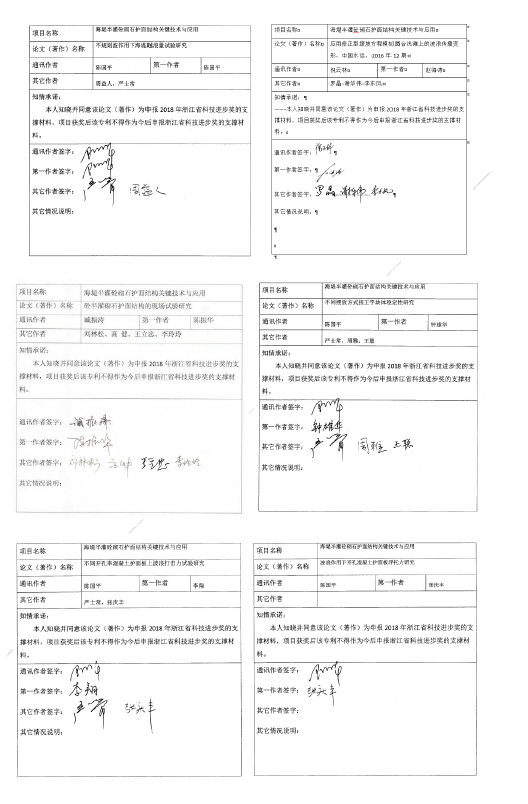 项目名称 海堤半灌砼砌石护面结构关键技术与应用
论文（著作）名称 不规则波作用下海堤越浪量试验研究
通讯作者 陈国平 第一作者 陈国平
其它作者 周益人，严士常
知情承诺：
本人知晓并同意该论文（著作）为申报 2018 年浙江省科技进步奖的支
撑材料，项目获奖后该专利不得作为今后申报浙江省科技进步奖的支撑材
料。
通讯作者签字：
第一作者签字：
其它作者签字： 周益人
其它情况说明：
项目名称 海堤半灌砼砌石护面结构关键技术与应用
论文（著作）名称
中国水运，2016 年 12 期
通讯作者 倪云林 第一作者 赵海涛
其它作者
知情承诺：
本人知晓并同意该论文（著作）为申报 2018 年浙江省科技进步奖的支撑
材料，项目获奖后该专利不得作为今后申报浙江省科技进步奖的支撑材料。
通讯作者签字：
第一作者签字：
其它作者签字：
其它情况说明：
项目名称 海堤半灌砼砌石护面结构关键技术与应用
论文（著作）名称 砼半灌砌石护面结构的现场试验研究
通讯作者 臧振涛 第一作者 陈振华
其它作者 刘林松、高 健、王立忠、李玲玲
知情承诺：
本人知晓并同意该论文（著作）为申报 2018 年浙江省科技进步奖的支
撑材料，项目获奖后该专利不得作为今后申报浙江省科技进步奖的支撑材
料。
通讯作者签字：
第一作者签字：
其它作者签字：
其它情况说明：
项目名称 海堤半灌砼砌石护面结构关键技术与应用
论文（著作）名称 不同摆放方式扭王字块体稳定性研究
通讯作者 陈国平 第一作者 钟雄华
其它作者 严士常，周雅，王聪
知情承诺：
本人知晓并同意该论文（著作）为申报 2018 年浙江省科技进步奖的支
撑材料，项目获奖后该专利不得作为今后申报浙江省科技进步奖的支撑材
料。
通讯作者签字：
第一作者签字： 钟雄华
其它作者签字： 周雅 王聪
其它情况说明：
项目名称 海堤半灌砼砌石护面结构关键技术与应用
论文（著作）名称 不同开孔率混凝土护面板上波浪打击力试验研究
通讯作者 陈国平 第一作者 李翔
其它作者 严士常，张庆丰
知情承诺：
本人知晓并同意该论文（著作）为申报 2018 年浙江省科技进步奖的支
撑材料，项目获奖后该专利不得作为今后申报浙江省科技进步奖的支撑材
料。
通讯作者签字：
第一作者签字： 李翔
其它作者签字： 张庆丰
其它情况说明：
项目名称 海堤半灌砼砌石护面结构关键技术与应用
论文（著作）名称 波浪作用下开孔混凝土护面板浮托力研究
通讯作者 陈国平 第一作者 张庆丰
其它作者
知情承诺：
本人知晓并同意该论文（著作）为申报 2018 年浙江省科技进步奖的支
撑材料，项目获奖后该专利不得作为今后申报浙江省科技进步奖的支撑材
料。
通讯作者签字：
第一作者签字： 张庆丰
其它作者签字：
其它情况说明：